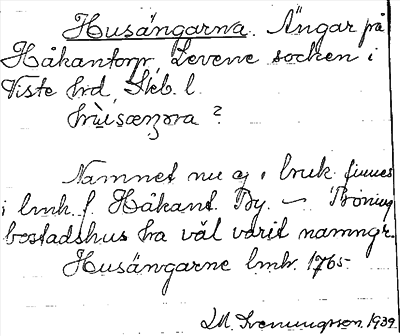 Husängarna. Ängar på
Håkantorp, Levene socken i
Viste hrd, Skb. l.
hùisæŋɔra ?
Namnet nu ej i bruk. finnes
i lmh. f. Håkant. By. — Boning
bostadshus ha väl varit namngr.
Husängarne lmh. 1765
M. Svenungsson 1939